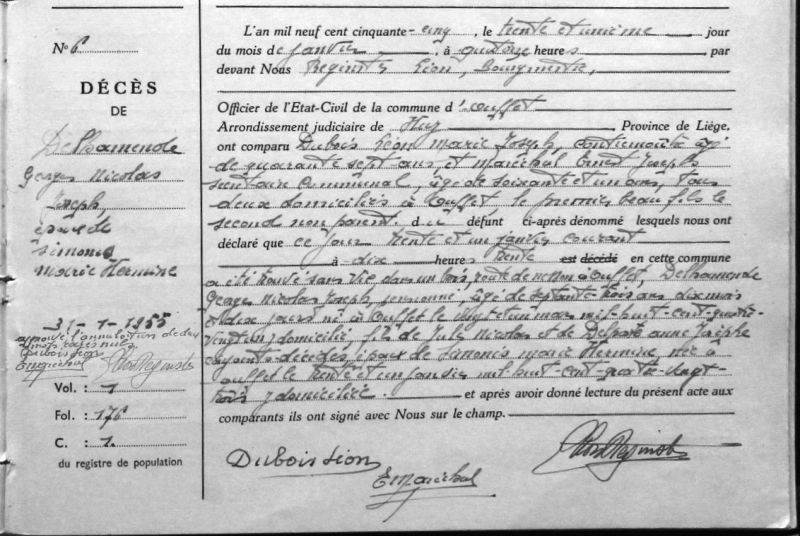 N° 6
DÉCÈS
DE
Delhamende
Georges Nicolas
Joseph,
époux de
Simonis
Marie Hermine
31-1-1955
approuvé l'annulation de deux
mots rayés nuls
Dubois Léon
E Maréchal
Vol. : 1
Fol. : 176
C. : 1.
du registre de population
L'an mil neuf cent cinquante-cinq, le trente et unième jour
du mois de janvier, à quatorze heures, par
devant Nous Reginster Léon, Bourgmestre,
Officier de l'Etat-Civil de la commune d'Ouffet
Arrondissement judiciaire de Huy, Province de Liége,
ont comparu Dubois Léon Marie Joseph, contremaître âgé
de quarante sept ans et Maréchal Ernest Joseph
secrétaire communal, âgé de soixante et un ans, tous
deux domiciliés à Ouffet le premier beau fils le
second non parent du défunt ci-après dénommé lesquels nous ont
déclaré que ce jour trente et un janvier courant
à dix heures trente est décédé en cette commune
a été trouvé sans vie dans un bois, route de à Ouffet, Delhamende
Georges Nicolas Joseph, pensionné, âgé de septante-trois ans dix mois
et dix jours né à Ouffet le vingt et un mars mil-huit-cent-quatre-
vingt-un y domicilié, fils de Jules Nicolas et de anne Josèphe
conjoints décédés époux de Simonis Marie Hermine, née à
Ouffet le trente et un janvier mil huit-cent-quatre-vingt-
trois y domiciliée. et après avoir donné lecture du présent acte aux
comparants ils ont signé avec Nous sur le champ.
Dubois Léon
E Maréchal